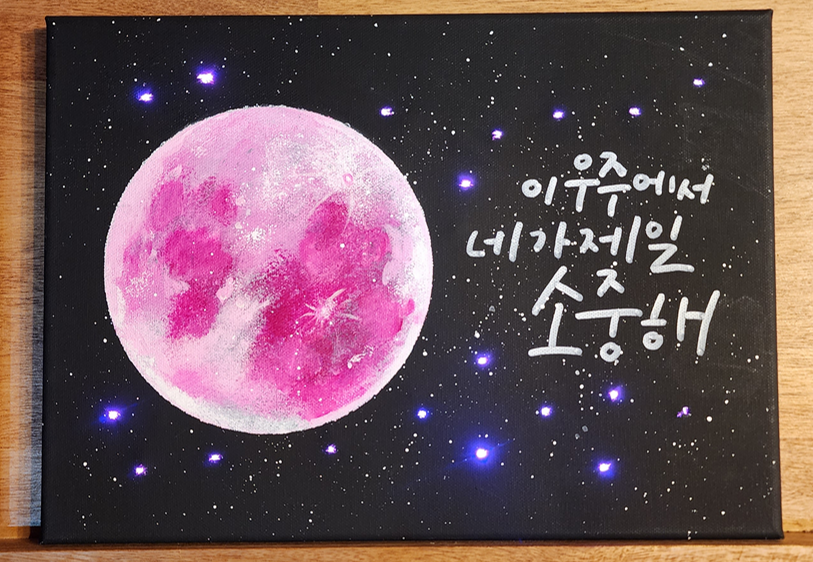 이 우주에서
네가 제일
소중해